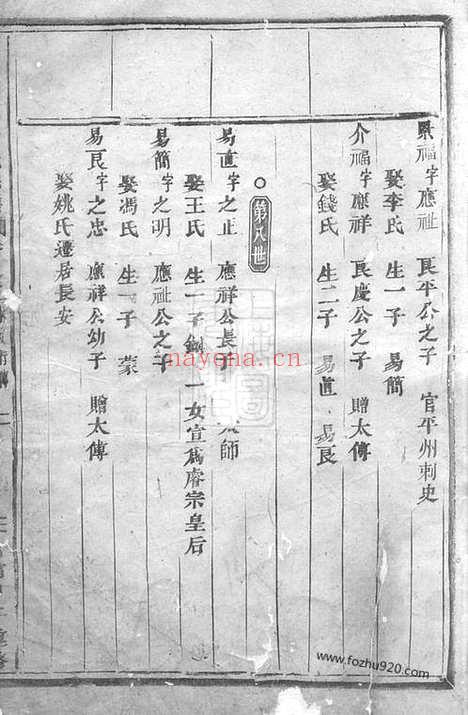 景福字應祉 良平公之子 官平州刺史
娶李氏 生一子 易簡
介福字應祥 良慶公之子 贈太傳
娶錢氏 生二子 易直 易良
第八世
易直字之正 應祥公長子 師
娶王氏 生一子 一女宣爲睿宗皇后
易簡字之明 應祉公之子
娶馮氏 生一子 蒙
易良字之忠 應祥公幼子 贈太傳
娶姚氏遷居長安
nayona.cn
www.fozhu920.com